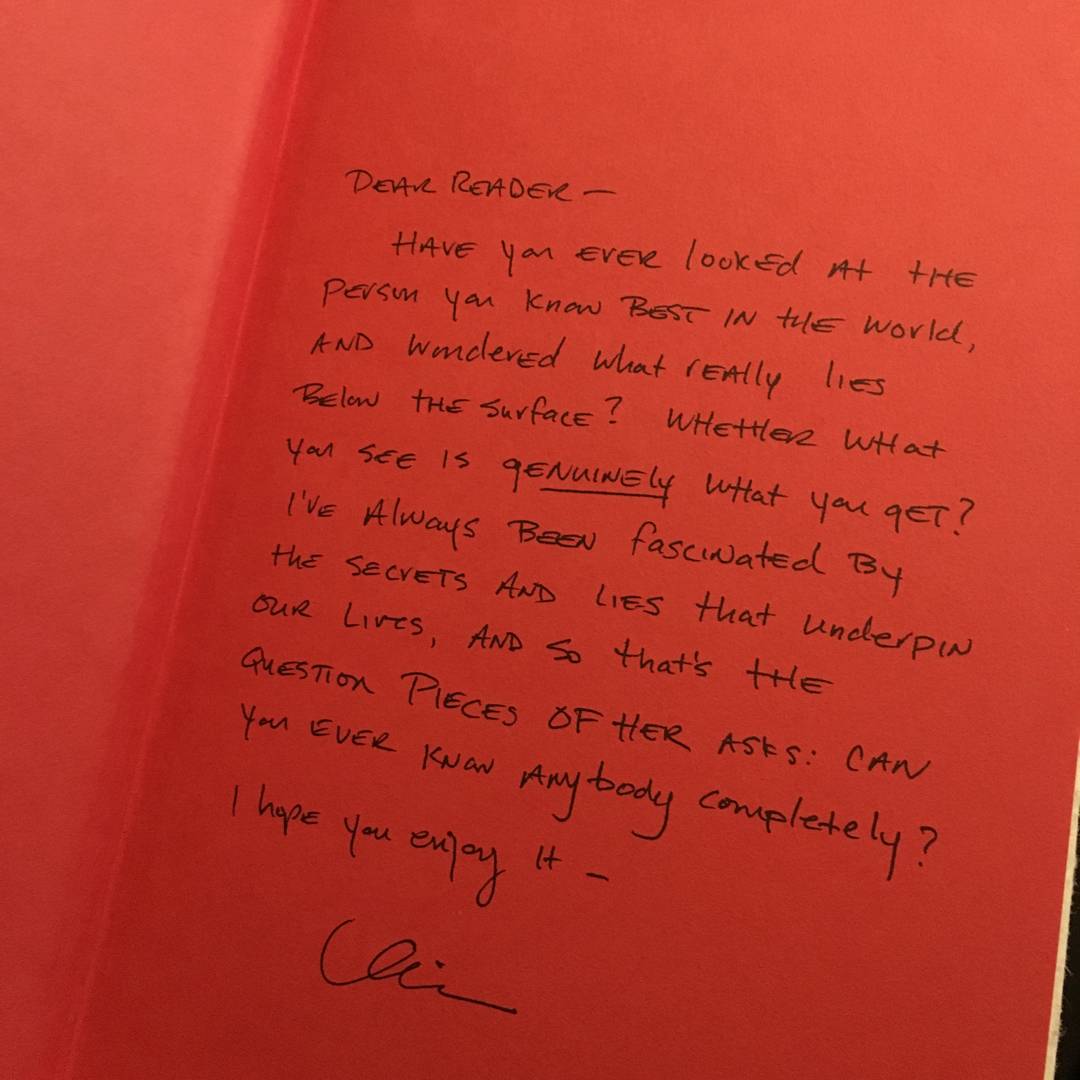 DEAR READER —
HAVE you EVER looked At tHE
Person you know BEST IN tHE world,
AND wondered what rEAlly liES
Below tHE surfACE? WHEtHER wHat
you SEE IS gENUINEly wHat you gET?
I'VE Always BEEN fascINated By
tHE SECrETS AND LIES that underpIN
OUR Lives, AND so that's tHE
QUESTION PIECES OF HER ASKS: CAN
you EVER KNow ANybody completely?
I hopE you enjoy It –